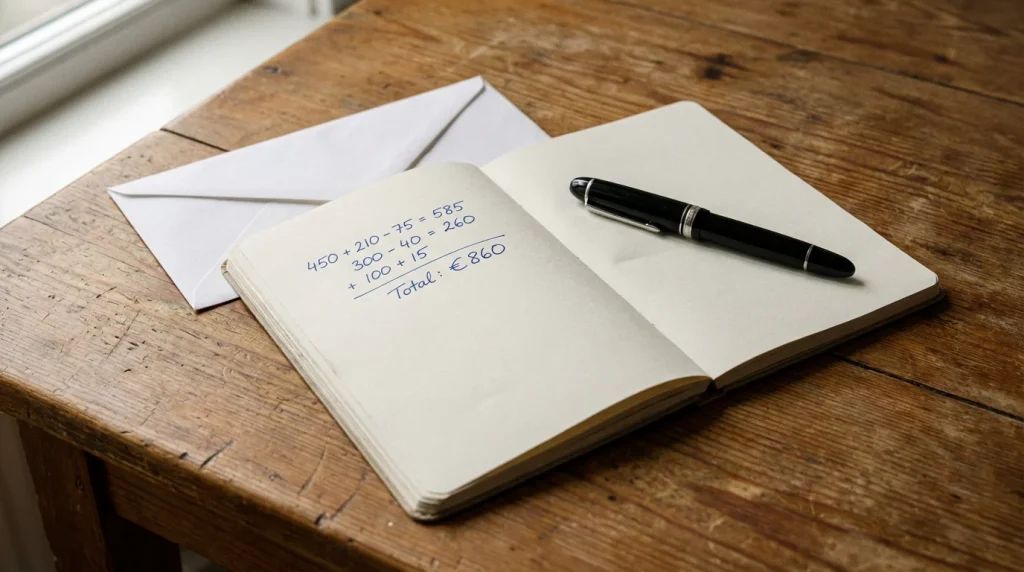 450 + 210 - 75 = 585
300 - 40 = 260
+ 100 + 15
Total: €860